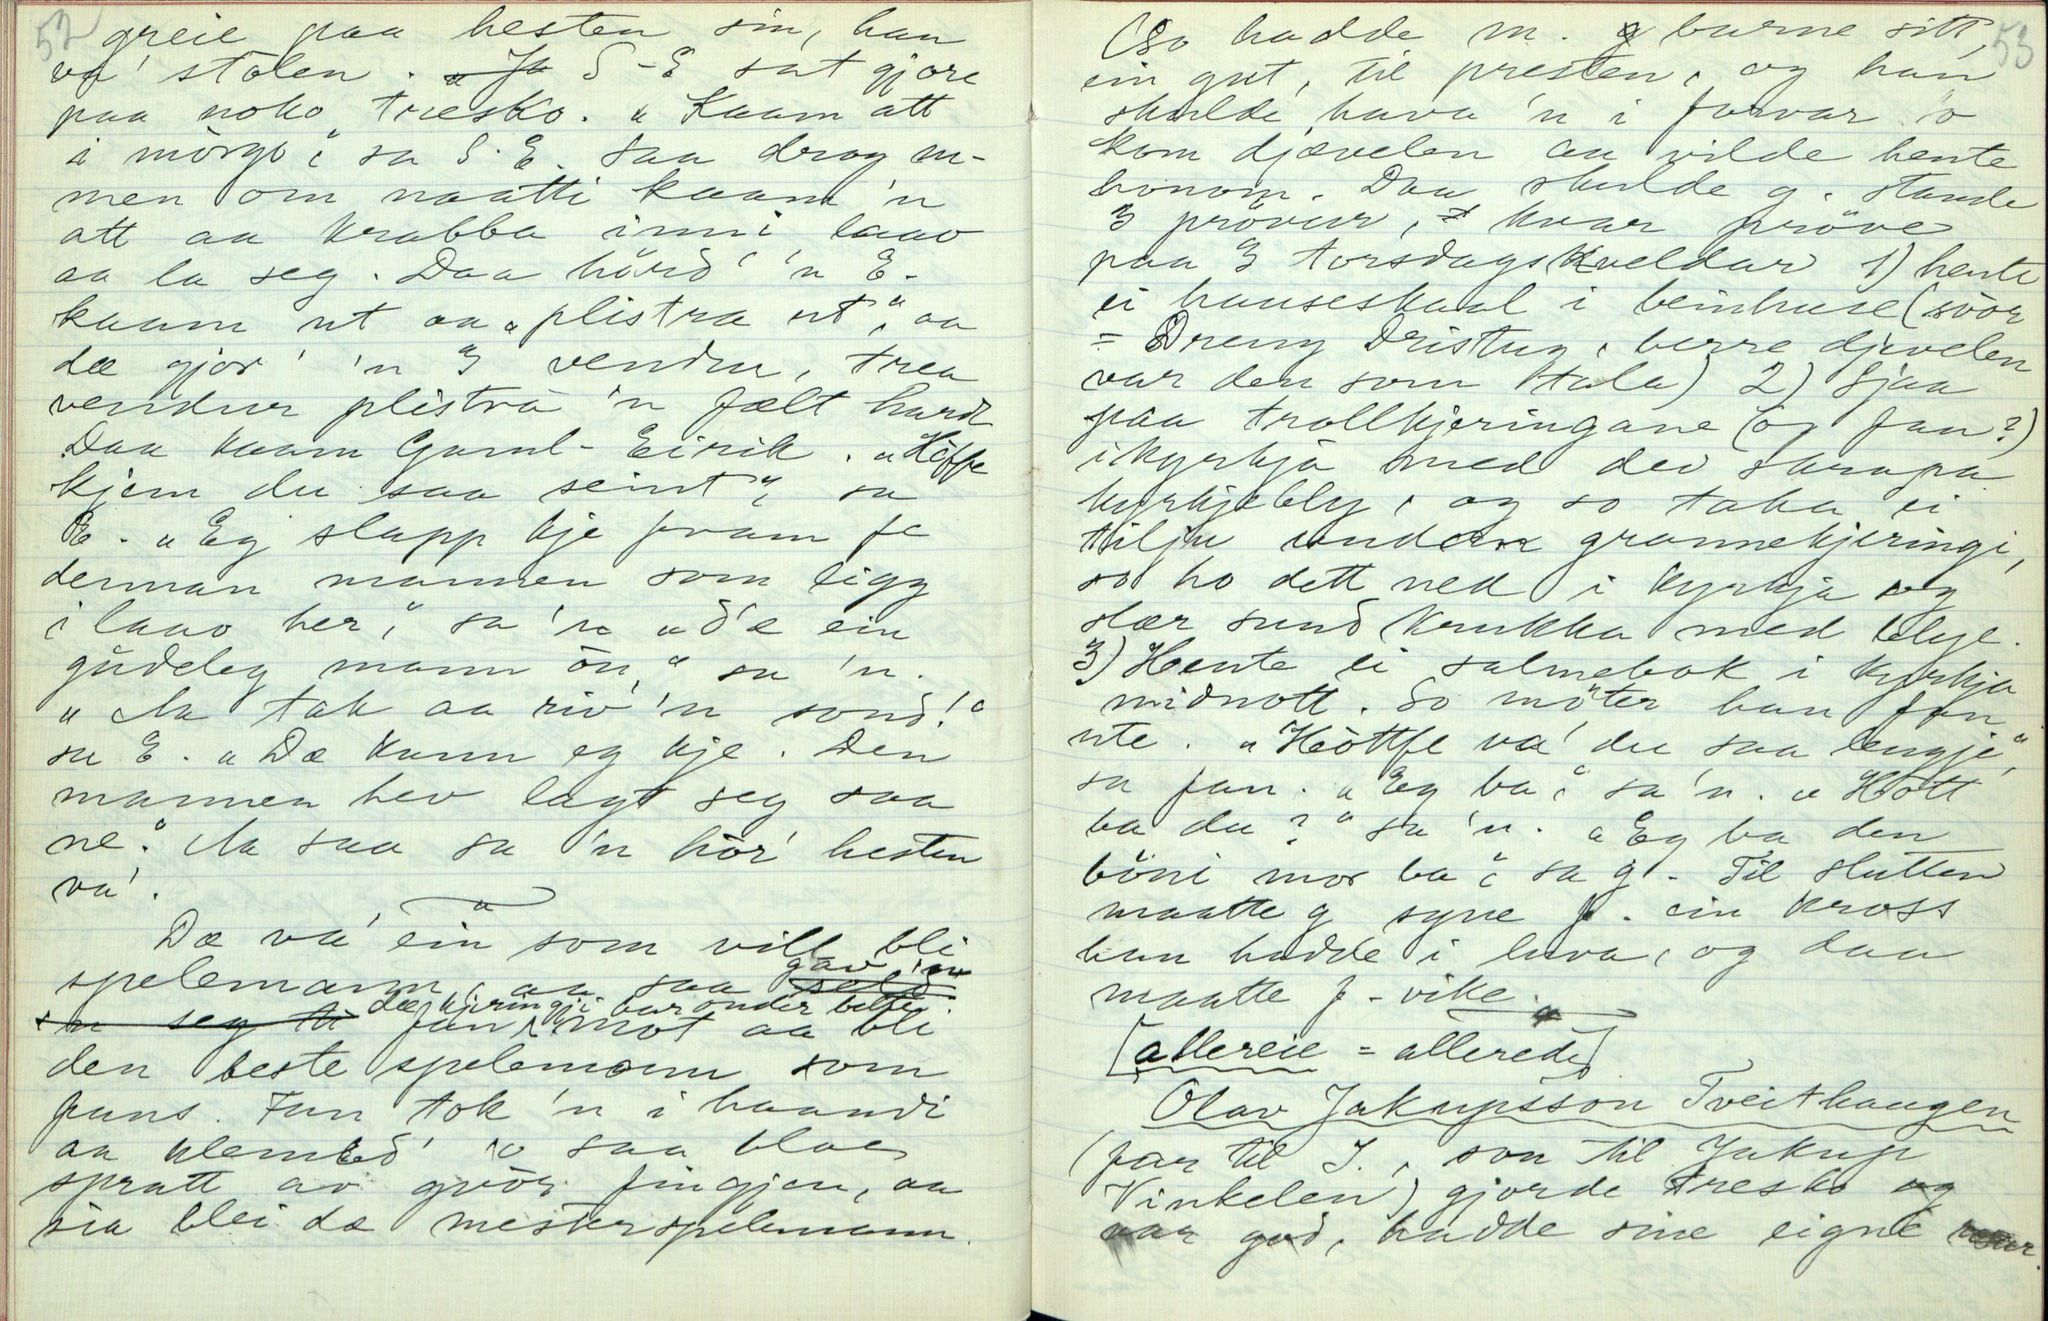 52
greie paa hesten sin, han
va' stolen. S-E sat gjore
paa noko træsko. "Kaam att
i mòrgo," sa S.E. Saa drog m-
men om naatti kaam 'n
att aa krabba inni laav
aa la seg. Daa hörd' 'n E-
kaam ut aa "plistra ut," aa
dæ gjor' 'n 3 vendu, trea
vendur plistra 'n fælt hardt
Daa kaam Gaml-Eirik. "Höffe
kjem du saa seint", sa
E. "Eg slapp kje fram fe
derman mannen som ligg
i laav her," sa 'n "d'æ ein
gudeleg mann òn," sa 'n.
"Aa tak aa riv 'n sond!"
sa E. "Dæ kann eg kje. Den
mannen hev lagt seg saa
ne." Aa saa sa 'n hòr' hesten
va'.
Dæ va' ein som vill bli
spelemann, aa saa gav 'n
dæ kjeringji bar onder belte
fan, imot aa bli
den beste spelemann som
fans. Fan tok 'n i haandi
aa klemd' so saa bloe
spratt av gvòr fingjen, aa
sia blei dæ mesterspelemann.
53
(So hadde m. g barne sitt,
ein gut, til presten, og han
skulde hava 'n i forvar so
kom djævelen aa vilde hente
honom. Daa skulde g. stande
3 prövur, kvar pröve
paa 3 torsdagskveldar 1) hente
ei hauseskaal i beinhuse (svòr
= Dreng Dristug, berre djevelen
var den som tala) 2) Sjaa
paa trollkjeringane (og fan?)
i kyrkja med dei skrapa
kyrkjebly, og so taka ei
tilju under grannekjeringi,
so ho dett ned i kyrkja og
slær sund krukka med blye.
3) Hente ei salmebok i kyrkja
midnott. So möter han fan
ute. "Höttfe va' du saa lengje,"
sa fan. "Eg ba," sa 'n. "Hött
ba du?" sa 'n. "Eg ba den
böni mor ba," sa g. Til slutten
maatte g syne f. ein kross
han hadde i huva, og daa
maatte f. vike.
[allereie = allerede]
Olav Jakupsson Tveithaugen
(far til J., son til Jakup
Vinkelen) gjorde tresko og
var god, hadde sine eigne